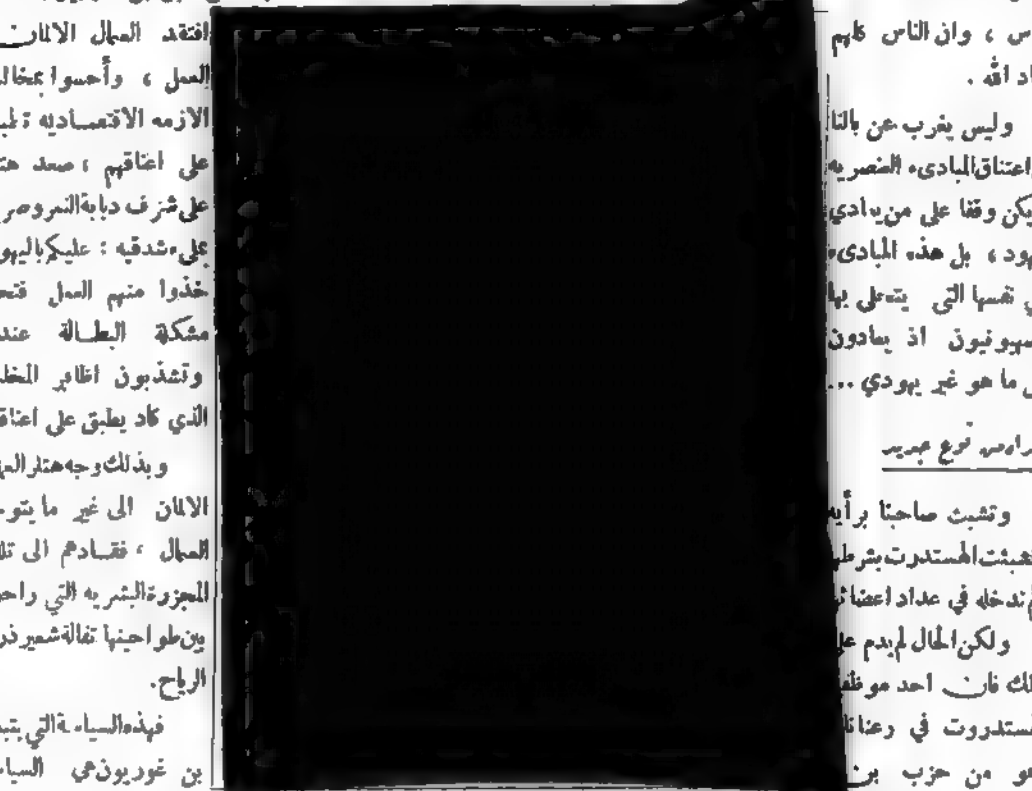 س ، وان الناس كلهم
اد الله .
وليس يغرب عن بالنا
اعتناق المبادىء العنصريه
يكن وقفا على من يعادي
هود ، بل هذه المبادىء
ي نفسها التي يتحلى بها
صهيونيون اذ يعادون
ل ما هو غير يهودي ...
نوع جديد
وتشبث صاحبنا برأيه
تشبثت الهستدروت بشرطها
م تدخله في عداد اعضائها
ولكن الحال لم يدم على
لك فان احد موظفي
هستدروت في رعنانا
هو من حزب بن
افتقد العمال الالمان
العمل ، وأحسوا بمخالب
الازمه الاقتصاديه تطبق
على اعناقهم ، صعد هتلر
على شرف دبابة النمر وصر
بملىء شدقيه : عليكم باليهو
خذوا منهم العمل فتح
مشكلة البطالة عند
وتشذبون اظافر المخل
الذي كاد يطبق على اعناق
وبذلك وجه هتلر العم
الالمان الى غير ما يتو
العمال ، فقادهم الى تلك
المجزرة البشريه التي راحوا
بين طواحينها تفالة شعير ذر
الرياح .
فهذه السياسة التي يتبع
بن غوريون هي السياس